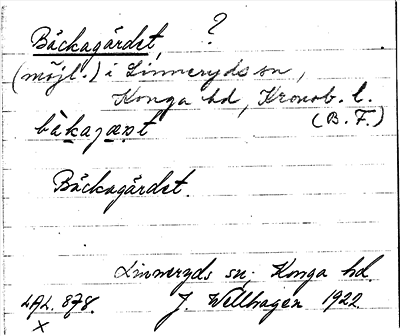 Bäckagärdet, ?
(möjl.) i Linneryds sn,
Konga hd, Kronob. l.
(B. F.)
Bäckagärdet.
Linneryds sn. Konga hd.
LAL. 878. J. Wellhagen 1922
x